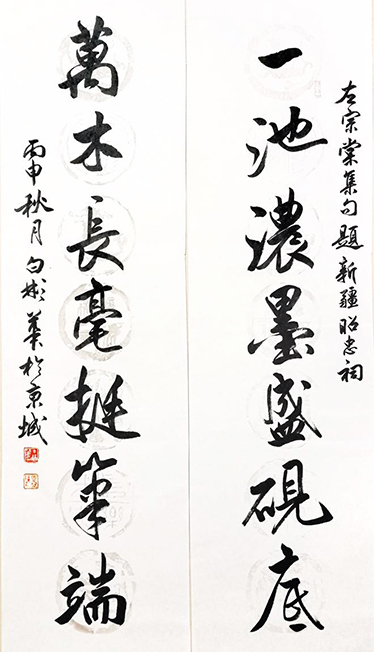 左宗棠集句題新疆昭忠祠
一池濃墨盛硯底
萬木長毫挺筆端
丙申秋月白彬華於京城